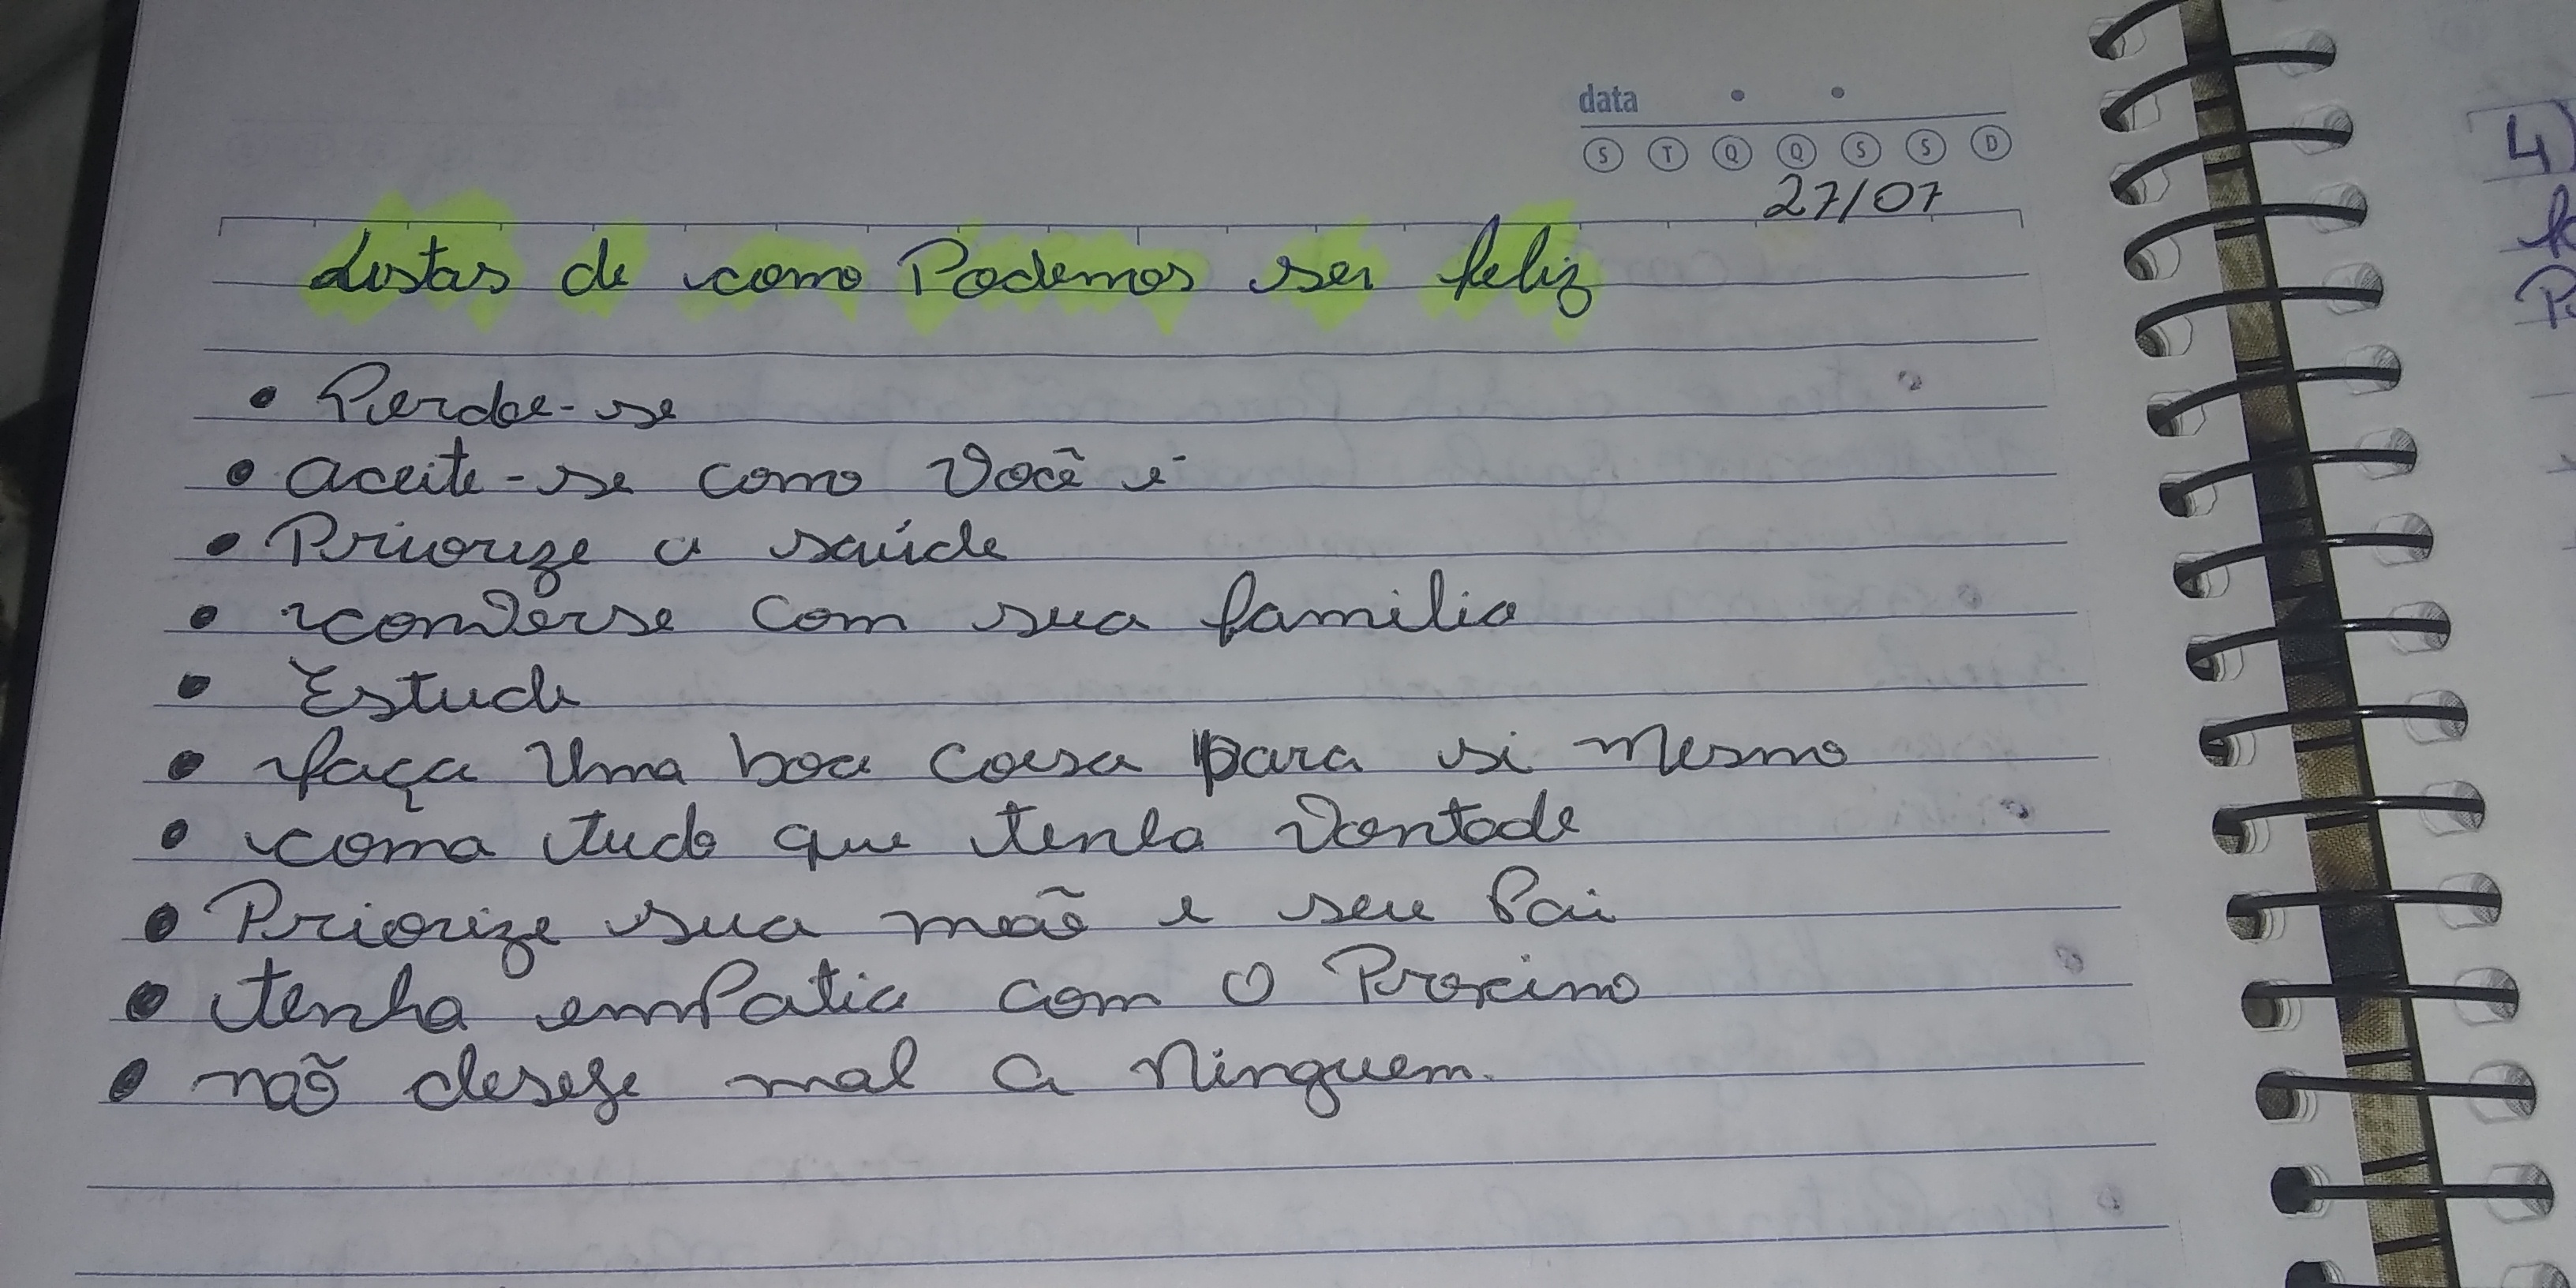 data
S T Q Q S S D
27/07
Listas de como Podemos ser feliz
• Perdoe-se
• aceite-se como Você é
• Priorize a saúde
• converse com sua familia
• Estude
• faça Uma boa coisa para si mesmo
• coma tudo que tenha Vontade
• Priorize sua mãe e seu Pai
• tenha emPatia com o Proximo
• não deseje mal a Ninguem.
4)